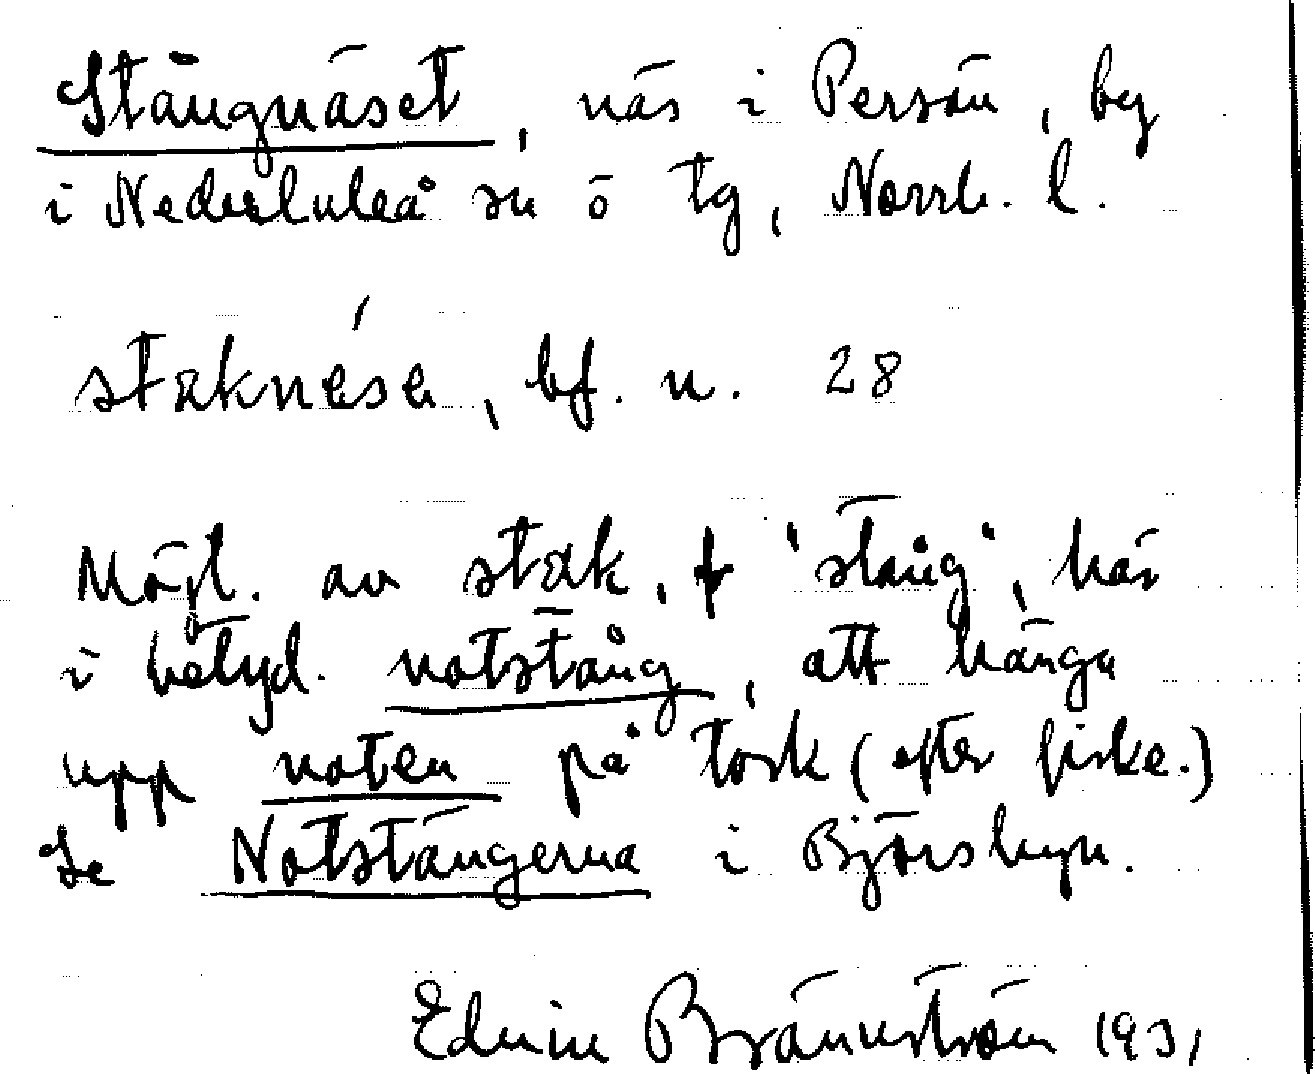 Stängnäset, näs i Persön, by
i Nederluleå sn ö tg, Norrb. l.
staknésn, bf. n. 28
Möjl. av stak, f 'stång', här
i betyd. notstång, att hänga
upp noten på tork (efter fiske.)
Se Notstängerna i Björsbyn.
Edvin Brännström 1931